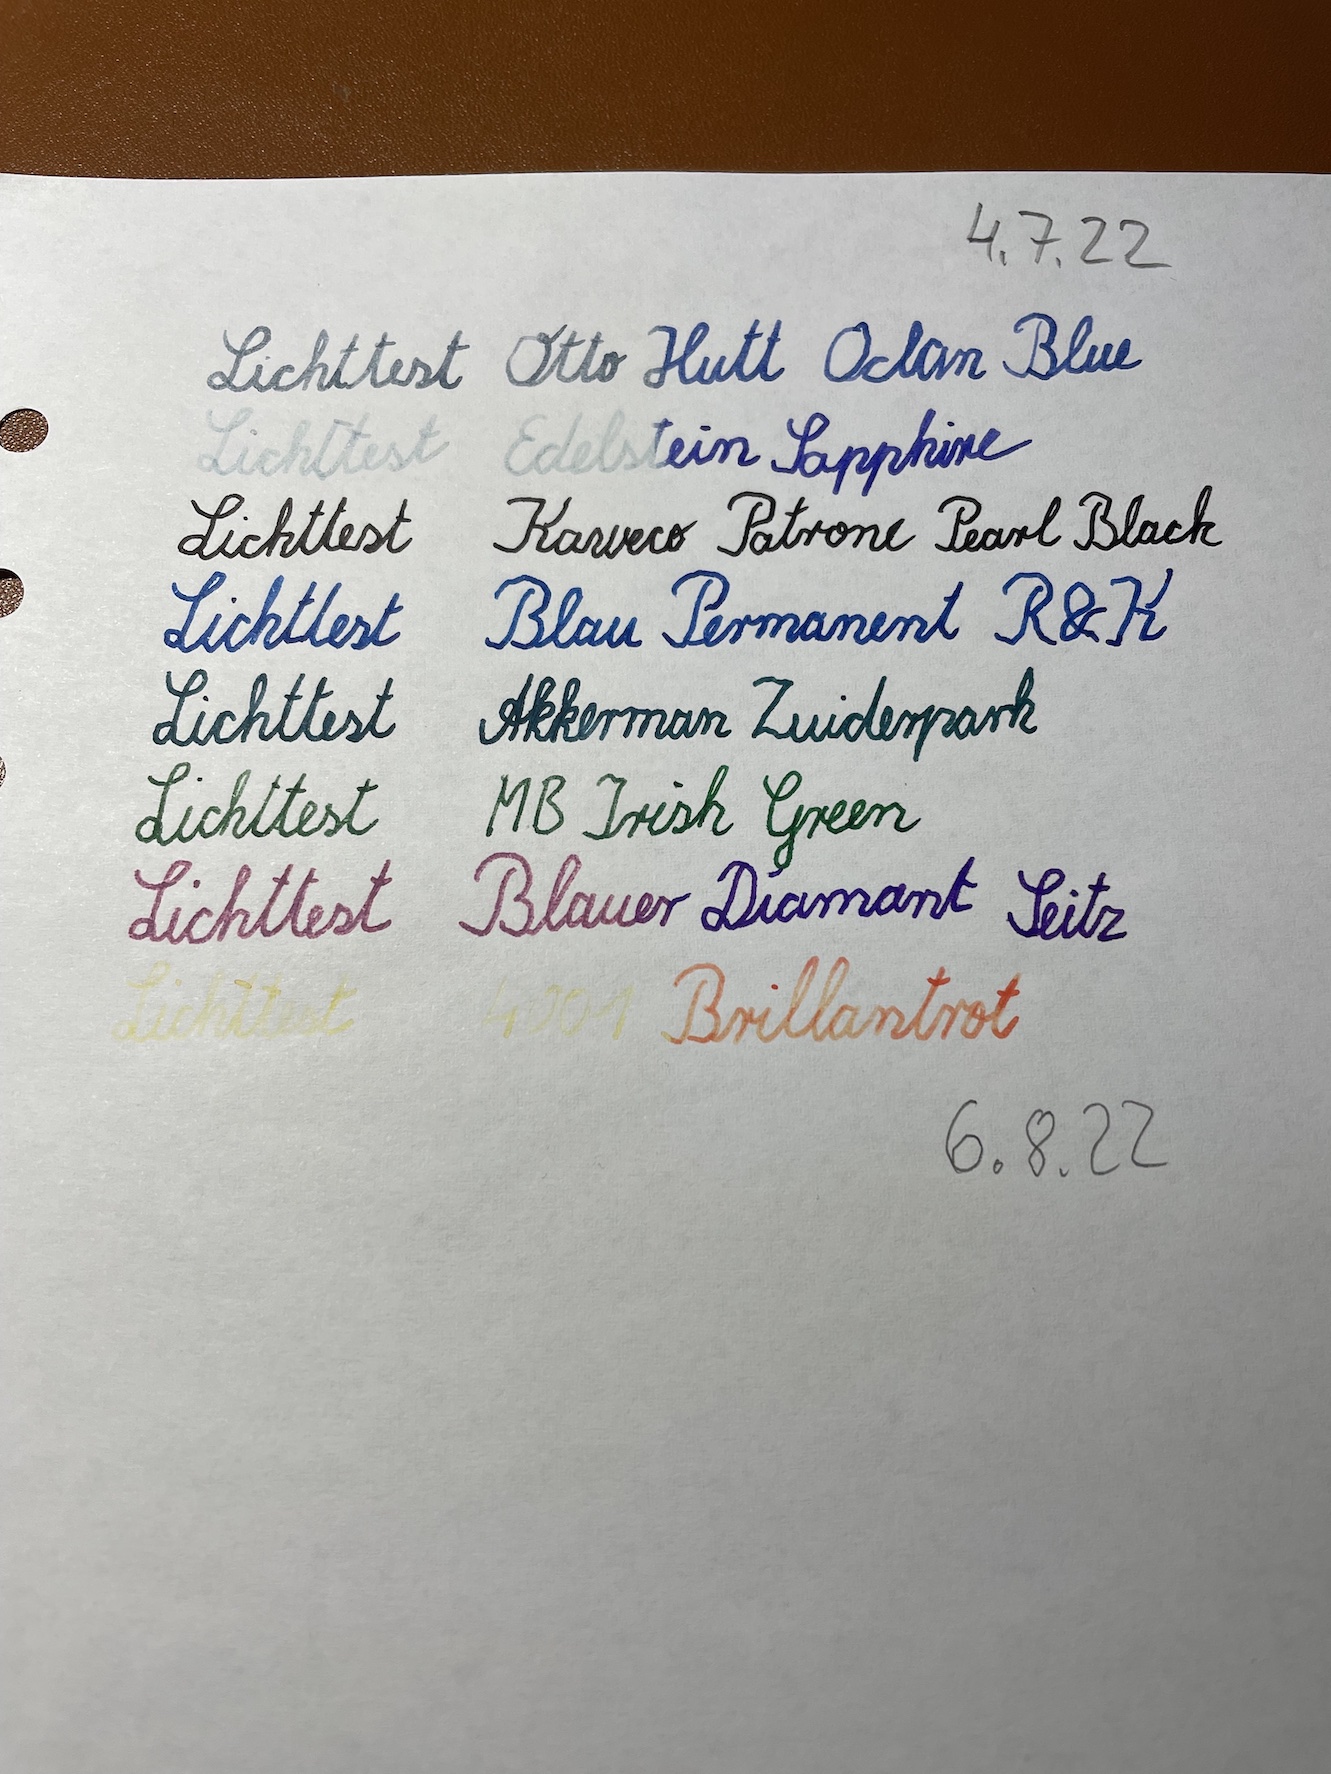 4.7.22
Lichttest Otto Hutt Oclan Blue
Lichttest Edelstein Sapphire
Lichttest Kaweco Patrone Pearl Black
Lichttest Blau Permanent R&K
Lichttest Akkerman Zuiderpark
Lichttest MB Irish Green
Lichttest Blauer Diamant Seitz
Lichttest 4001 Brillantrot
6.8.22